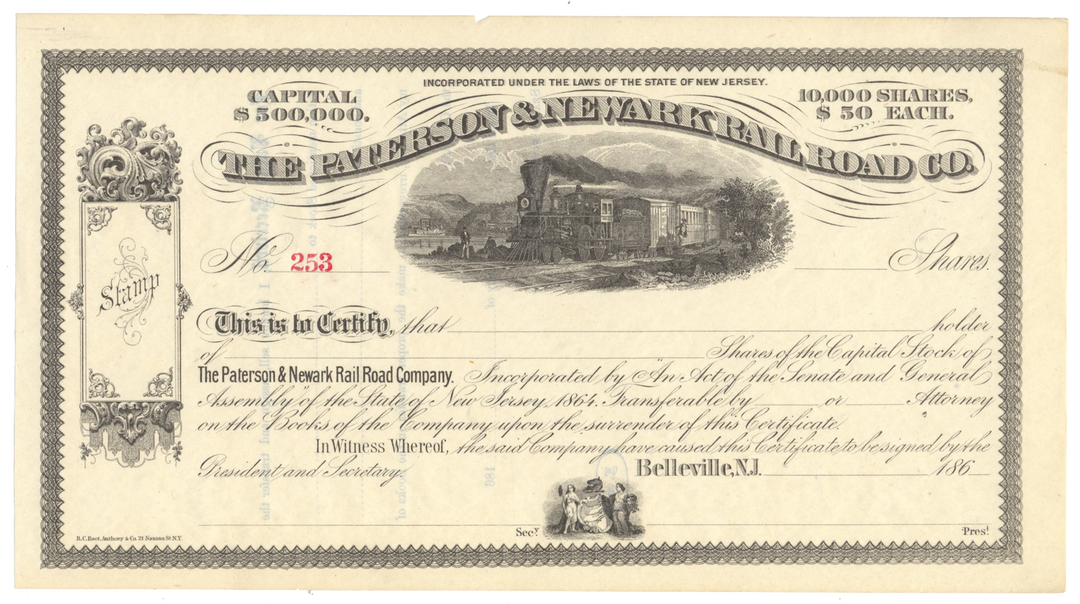 INCORPORATED UNDER THE LAWS OF THE STATE OF NEW JERSEY.
CAPITAL
$500,000.
10,000 SHARES,
$50 EACH.
THE PATERSON & NEWARK RAIL ROAD CO.
No. 253
Shares.
Stamp
This is to Certify, that holder
of Shares of the Capital Stock of
The Paterson & Newark Rail Road Company. Incorporated by "An Act of the Senate and General
Assembly" of the State of New Jersey, 1864. Transferable by or Attorney
on the Books of the Company upon the surrender of this Certificate.
In Witness Whereof, the said Company have caused this Certificate to be signed by the
President and Secretary.
Belleville, N.J. 186
Secy
Prest
R.C. Root, Anthony & Co. 21 Nassau St N.Y.